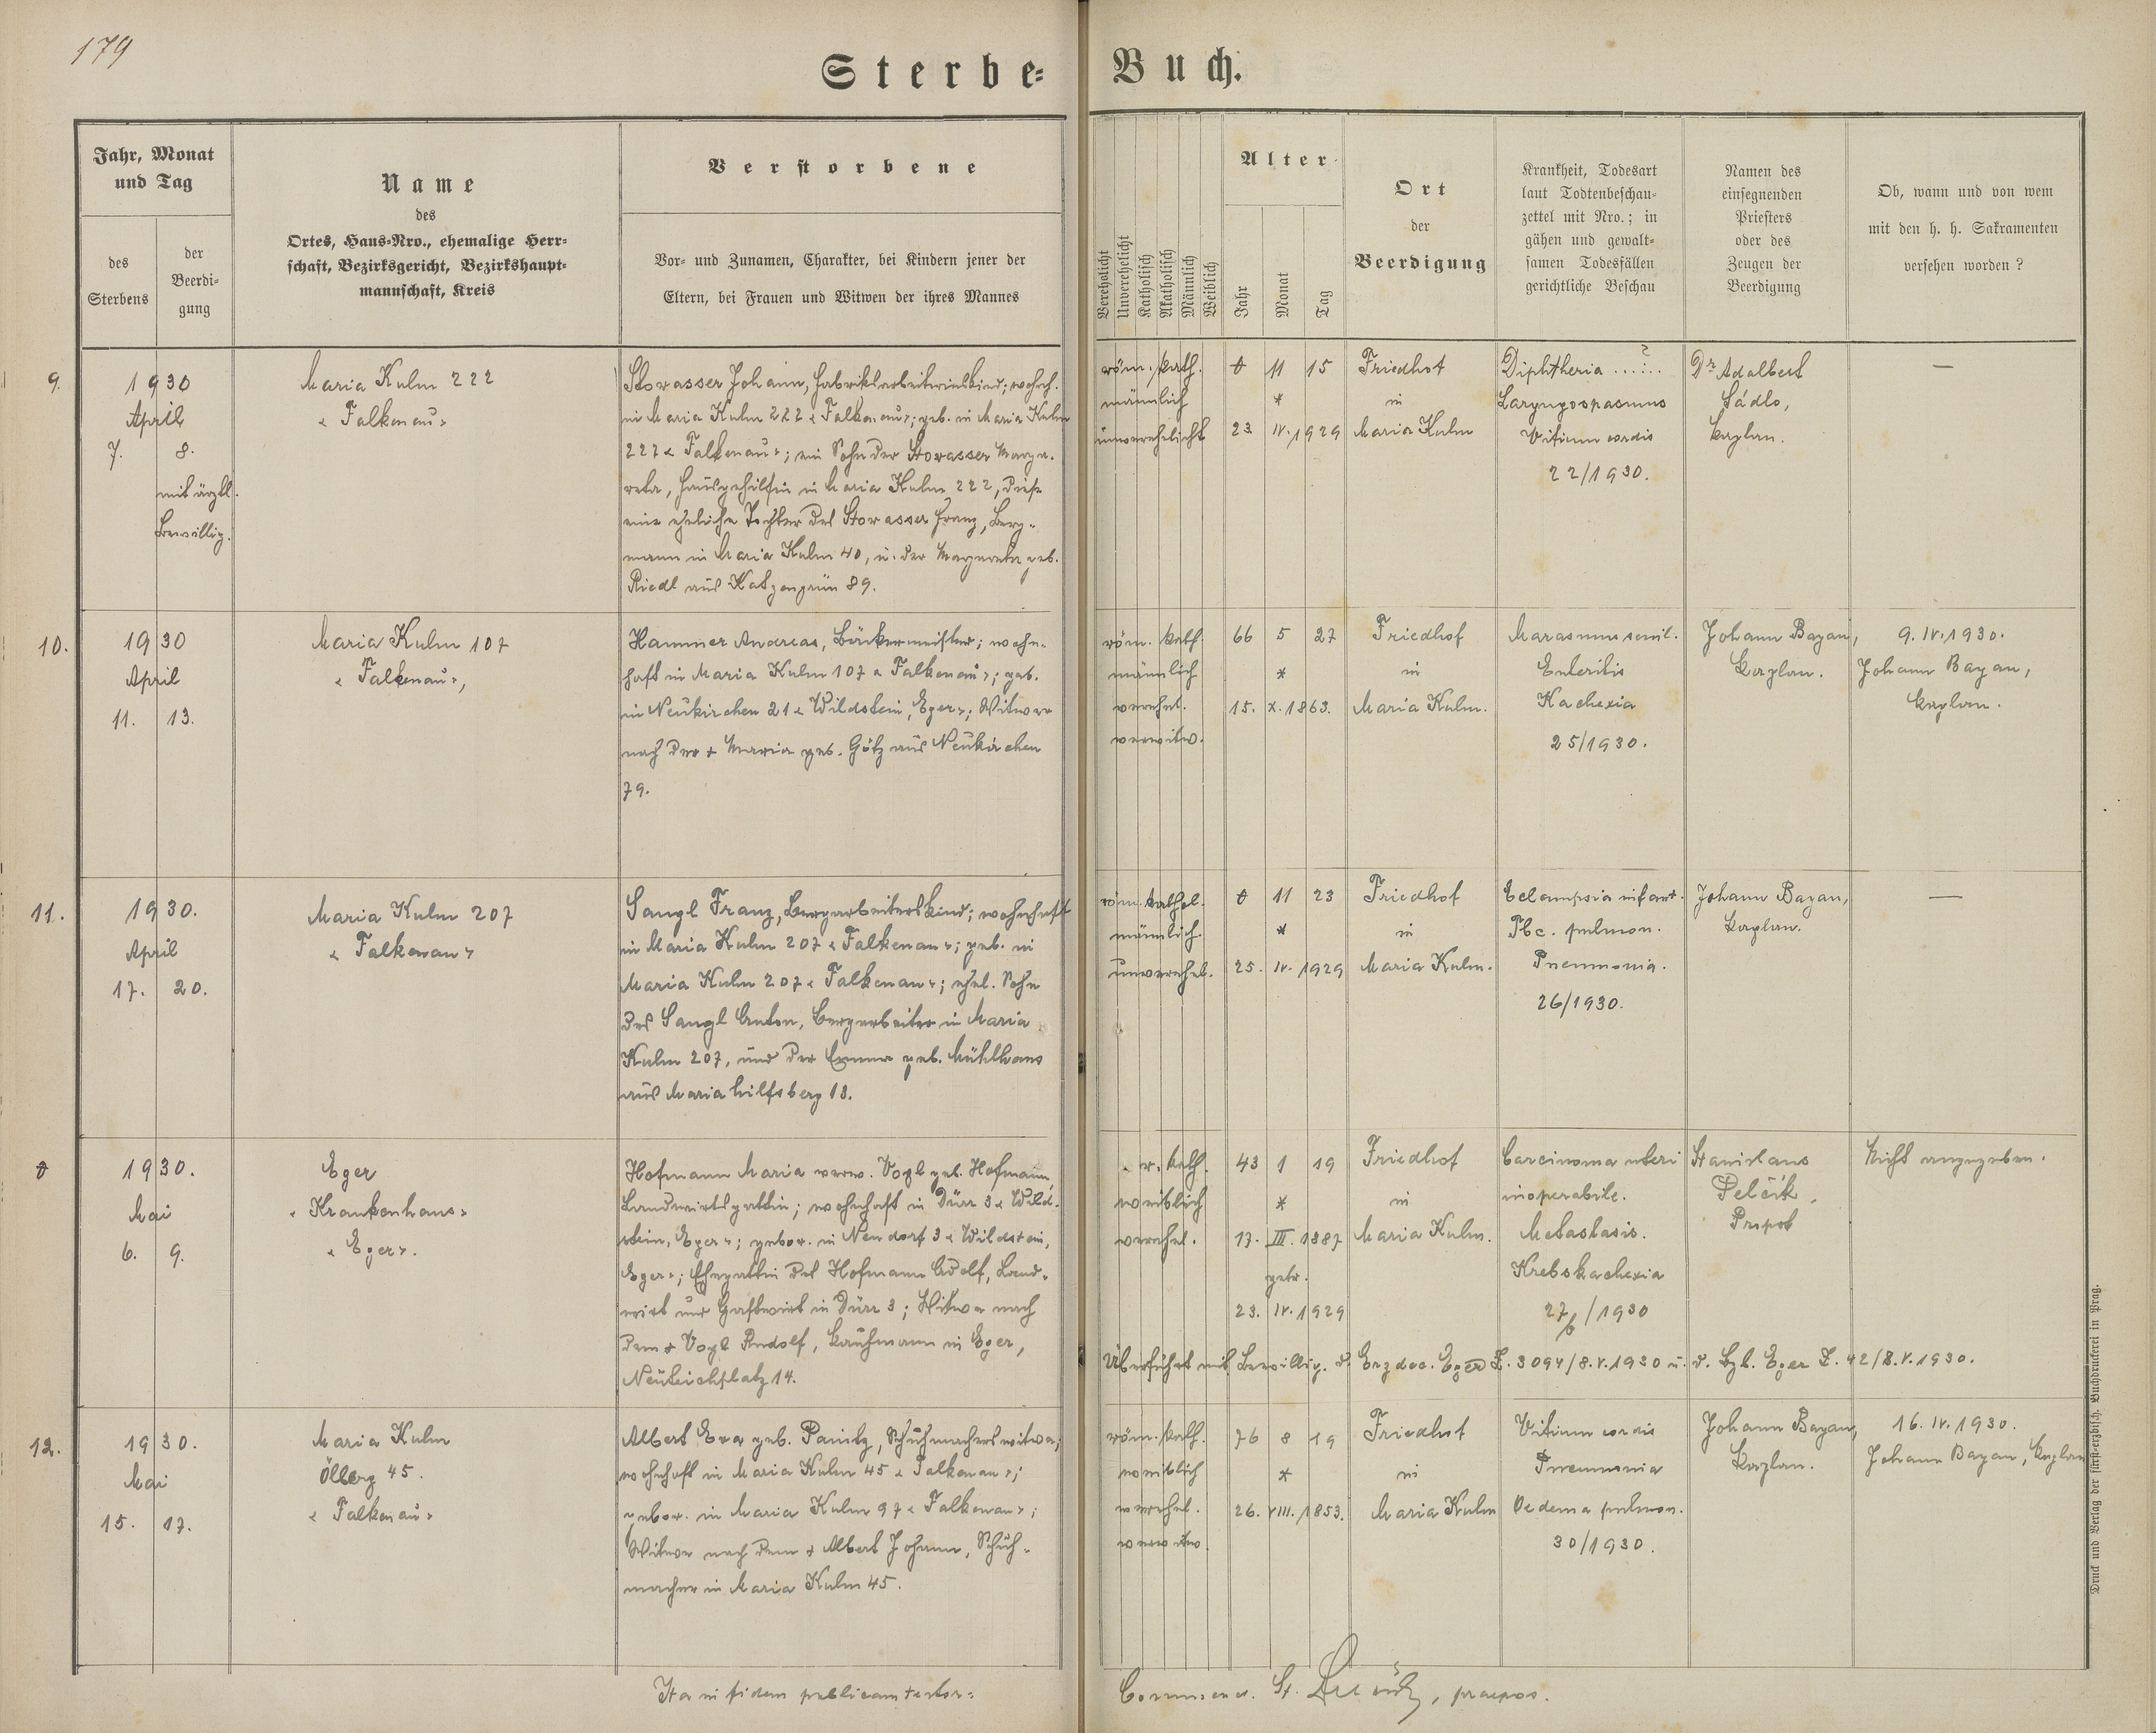 179
Sterbe-
Buch.
Jahr, Monat
und Tag
des
Sterbens
der
Beerdi-
gung
Name
des
Ortes, Haus-Nro., ehemalige Herr-
schaft, Bezirksgericht, Bezirkshaupt-
mannschaft, Kreis
Verstorbene
Vor- und Zunamen, Charakter, bei Kindern jener der
Eltern, bei Frauen und Witwen der ihres Mannes
Verehelicht
Unverehelicht
Katholisch
Akatholisch
Männlich
Weiblich
Alter
Jahr
Monat
Tag
Ort
der
Beerdigung
Krankheit, Todesart
laut Todtenbeschau-
zettel mit Nro.; in
gähen und gewalt-
samen Todesfällen
gerichtliche Beschau
Namen des
einsegnenden
Priesters
oder des
Zeugen der
Beerdigung
Ob, wann und von wem
mit den h. h. Sakramenten
versehen worden?
9.
1930
April
7. 8.
mit ärztl.
Bewillig.
Maria Kulm 222
« Falkenau »
Stowasser Johann, Fabriksarbeiterinskind; wohnh.
in Maria Kulm 222 « Falkenau »; geb. in Maria Kulm
222 « Falkenau »; ein Sohn der Stowasser Marga-
reta, Hausgehilfin in Maria Kulm 222, diese
eine eheliche Tochter des Stowasser Franz, Berg-
mann in Maria Kulm 40, u. der Margareta geb.
Riedl aus Katzengrün 89.
röm. kath.
männlich
unverehelicht
0 11 15
*
23. IV. 1929
Friedhof
in
Maria Kulm
Diphtheria ...?..
Laryngospasmus
Vitium cordis
22/1930.
Dr Adalbert
Sádlo,
Kaplan.
—
10.
1930
April
11. 13.
Maria Kulm 107
« Falkenau »,
Hammer Andreas, Bäckermeister; wohn-
haft in Maria Kulm 107 « Falkenau »; geb.
in Neukirchen 21 « Wildstein, Eger »; Witwer
nach der + Maria geb. Götz aus Neukirchen
79.
röm. kath.
männlich
verehel.
verwitw.
66 5 27
*
15. X. 1863.
Friedhof
in
Maria Kulm.
Marasmus senil.
Enteritis
Kachexia
25/1930.
Johann Bayan,
Kaplan.
9. IV. 1930.
Johann Bayan,
Kaplan.
11.
1930.
April
17. 20.
Maria Kulm 207
« Falkenau »
Sangl Franz, Bergarbeiterskind; wohnhaft
in Maria Kulm 207 « Falkenau »; geb. in
Maria Kulm 207 « Falkenau »; ehel. Sohn
des Sangl Anton, Bergarbeiter in Maria
Kulm 207, und der Emma geb. Mühlhans
aus Mariahilfsberg 18.
röm. kathol.
männlich.
unverehel.
0 11 23
*
25. IV. 1929
Friedhof
in
Maria Kulm.
Eclampsia infant.
Tbc. pulmon.
Pneumonia.
26/1930.
Johann Bayan,
Kaplan.
—
0
1930.
Mai
6. 9.
Eger
« Krankenhaus »
« Eger ».
Hofmann Maria verw. Vogl geb. Hofmann,
Landwirtsgattin; wohnhaft in Dürr 3 « Wild-
stein, Eger »; gebor. in Neudorf 3 « Wildstein,
Eger »; Ehegattin des Hofmann Adolf, Land-
wirt und Gastwirt in Dürr 3; Witwe nach
dem + Vogl Rudolf, Kaufmann in Eger,
Neuteichplatz 14.
r. kath.
weiblich
verehel.
43 1 19
*
17. III. 1887
getr.
23. IV. 1929
Friedhof
in
Maria Kulm.
Carcinoma uteri
inoperabile.
Metastasis.
Krebskachexia
27/b/1930
Stanislaus
Pelčík,
Propst
Nicht angegeben.
Überführt mit Bewillig. d. Erzdec. Eger Z. 3094/8.V.1930 u. d. Bzb. Eger Z. 42/8.V.1930.
12.
1930.
Mai
15. 17.
Maria Kulm
Ölberg 45.
« Falkenau »
Albert Eva geb. Panitz, Schuhmacherswitwe;
wohnhaft in Maria Kulm 45 « Falkenau »;
gebor. in Maria Kulm 97 « Falkenau »;
Witwe nach dem + Albert Johann, Schuh-
macher in Maria Kulm 45.
röm. kath.
weiblich
verehel.
verwitw.
76 8 19
*
26. VIII. 1853.
Friedhof
in
Maria Kulm
Vitium cordis
Pneumonia
Oedema pulmon.
30/1930.
Johann Bayan,
Kaplan.
16. IV. 1930.
Johann Bayan, Kaplan
Ita in fidem publicam testor:
Commend. St. praepos.
Druck und Verlag der fürst-erzbisch. Buchdruckerei in Prag.